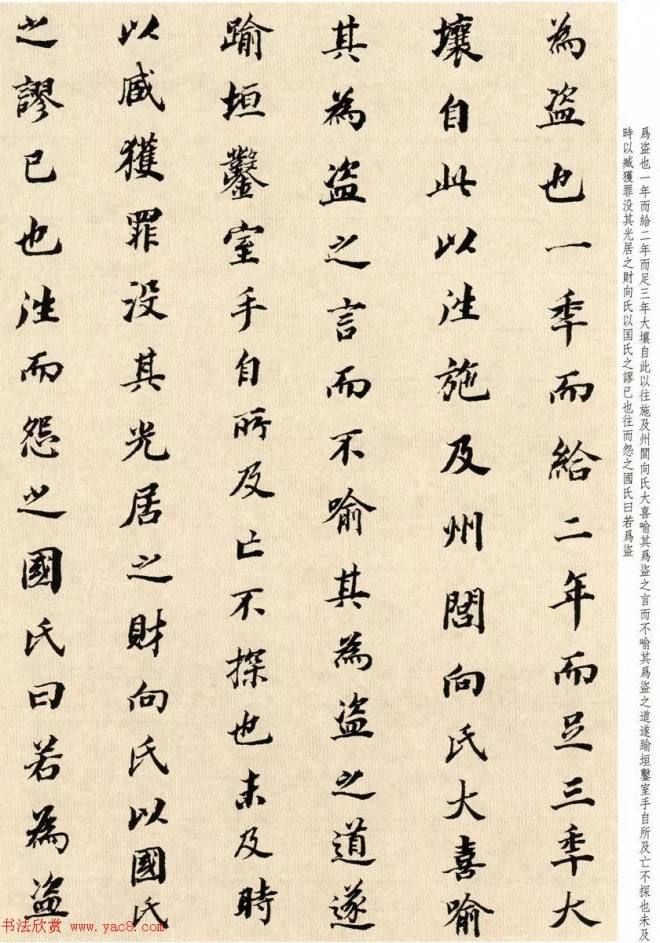 爲盗也一年而給二年而足三年大壤自此以往施及州間向氏大喜喻其爲盗之言而不喻其爲盗之道遂踰垣鑿室手自所及亡不探也未及
時以臧獲罪没其光居之財向氏以国氏之謬已也往而怨之國氏曰若爲盗
為盗也一秊而給二年而足三秊大
壤自此以往施及州閭向氏大喜喻
其為盗之言而不喻其為盗之道遂
踰垣鑿室手自所及亡不探也未及時
以臧獲罪没其光居之財向氏以國氏
之謬已也往而怨之國氏曰若為盗
书法欣赏 www.yac8.com